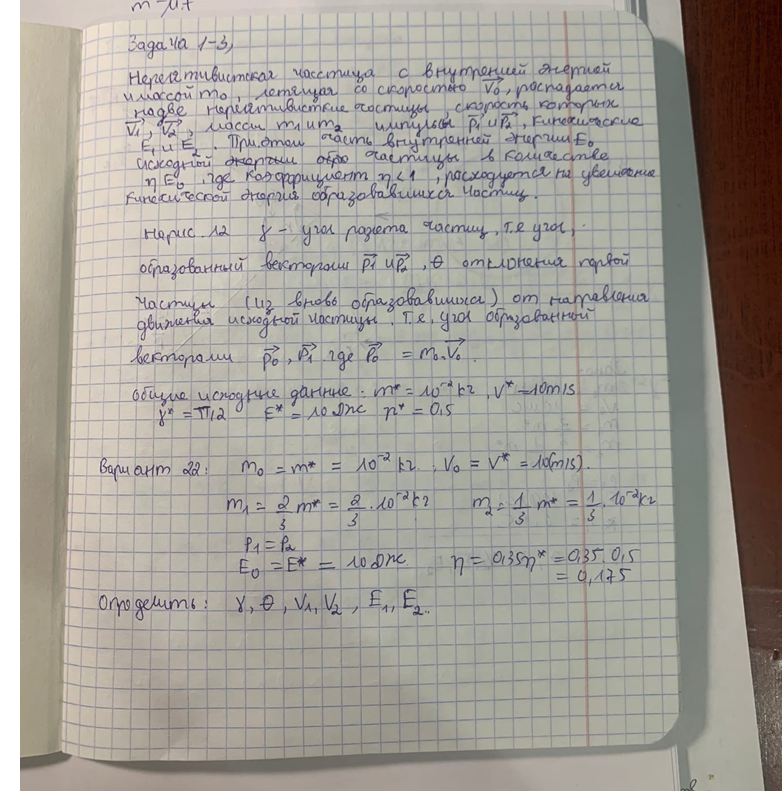 Задача 1-3,
Нерелятивистская частица с внутренней энергией
и массой m₀, летящая со скоростью V₀, распадается
на две нерелятивисткие частицы, скорость которых
V₁, V₂, массы m₁ и m₂ импульсы p₁ и p₂, кинетические
E₁ и E₂. При этом часть внутренней энергии E₀
исходной энергии частицы в количестве
ηE₀, где коэффициент η<1, расходуется на увеличение
кинетической энергия образовавшихся частиц.
На рис. 12 γ – угол разлёта частиц, т.е угол,
образованный векторами p₁ и p₂, θ отклонения первой
частицы (из вновь образовавшихся) от направления
движения исходной частицы. Т.е, угол образованный
векторами p₀, p₁ где p₀ = m₀·V₀.
общие исходные данные: m* = 10⁻² kг, V* = 10m/s
γ* = π/2 E* = 10 Дж η* = 0,5
Вариант 22: m₀ = m* = 10⁻² kг, V₀ = V* = 10(m/s).
m₁ = 2/3 m* = 2/3 · 10⁻² kг m₂ = 1/3 m* = 1/3 · 10⁻² kг
p₁ = p₂
E₀ = E* = 10 Дж. η = 0,35η* = 0,35 0,5
= 0,175
Определить: γ, θ, V₁, V₂, E₁, E₂..